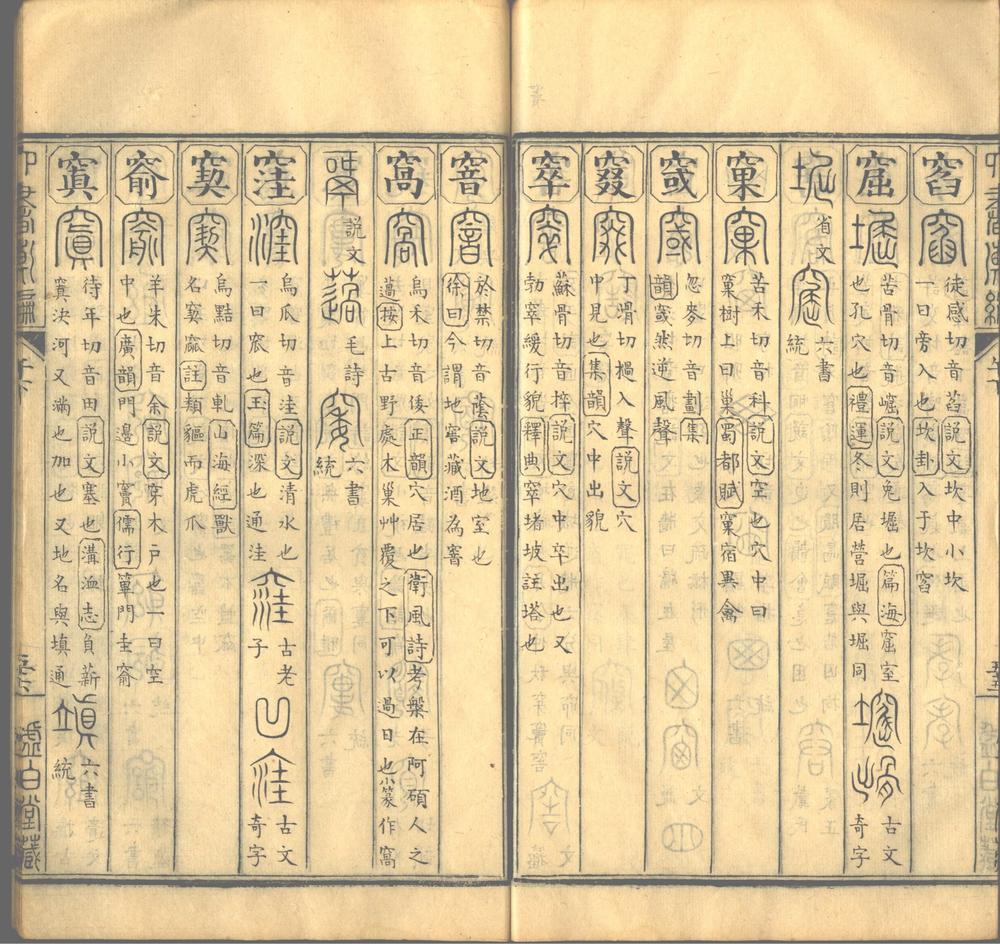 窞 徒感切音萏說文坎中小坎
一曰旁入也坎卦入于坎窞
窟 苦骨切音崛說文兔堀也篇海窟室
也孔穴也禮運冬則居營堀與堀同 古文奇字
省文 六書統
窠 苦禾切音科說文空也穴中曰
窠樹上曰巢蜀都賦窠宿異禽
窢 忽麥切音劃集
韻窢然逆風聲
窡 丁滑切撾入聲說文穴
中見也集韻穴中出貌
窣 蘇骨切音捽說文穴中卒出也又
勃窣緩行貌釋典窣堵坡註塔也
窨 於禁切音蔭說文地室也
徐曰今謂地窖藏酒為窨
窩 烏禾切音倭正韻穴居也衛風詩考槃在阿碩人之
薖按上古野處木巢艸覆之下可以過日也小篆作窩
說文 薖 毛詩 六書統
窪 烏瓜切音洼說文清水也
一曰窊也玉篇深也通洼 古老子 凹 古文奇字
窫 烏黠切音軋山海經獸
名窫窳註類貙而虎爪
窬 羊朱切音余說文穿木戶也一曰空
中也廣韻門邊小竇儒行篳門圭窬
窴 待年切音田說文塞也溝洫志負薪
窴決河又滿也加也又地名與填通 六書統
虛白堂藏